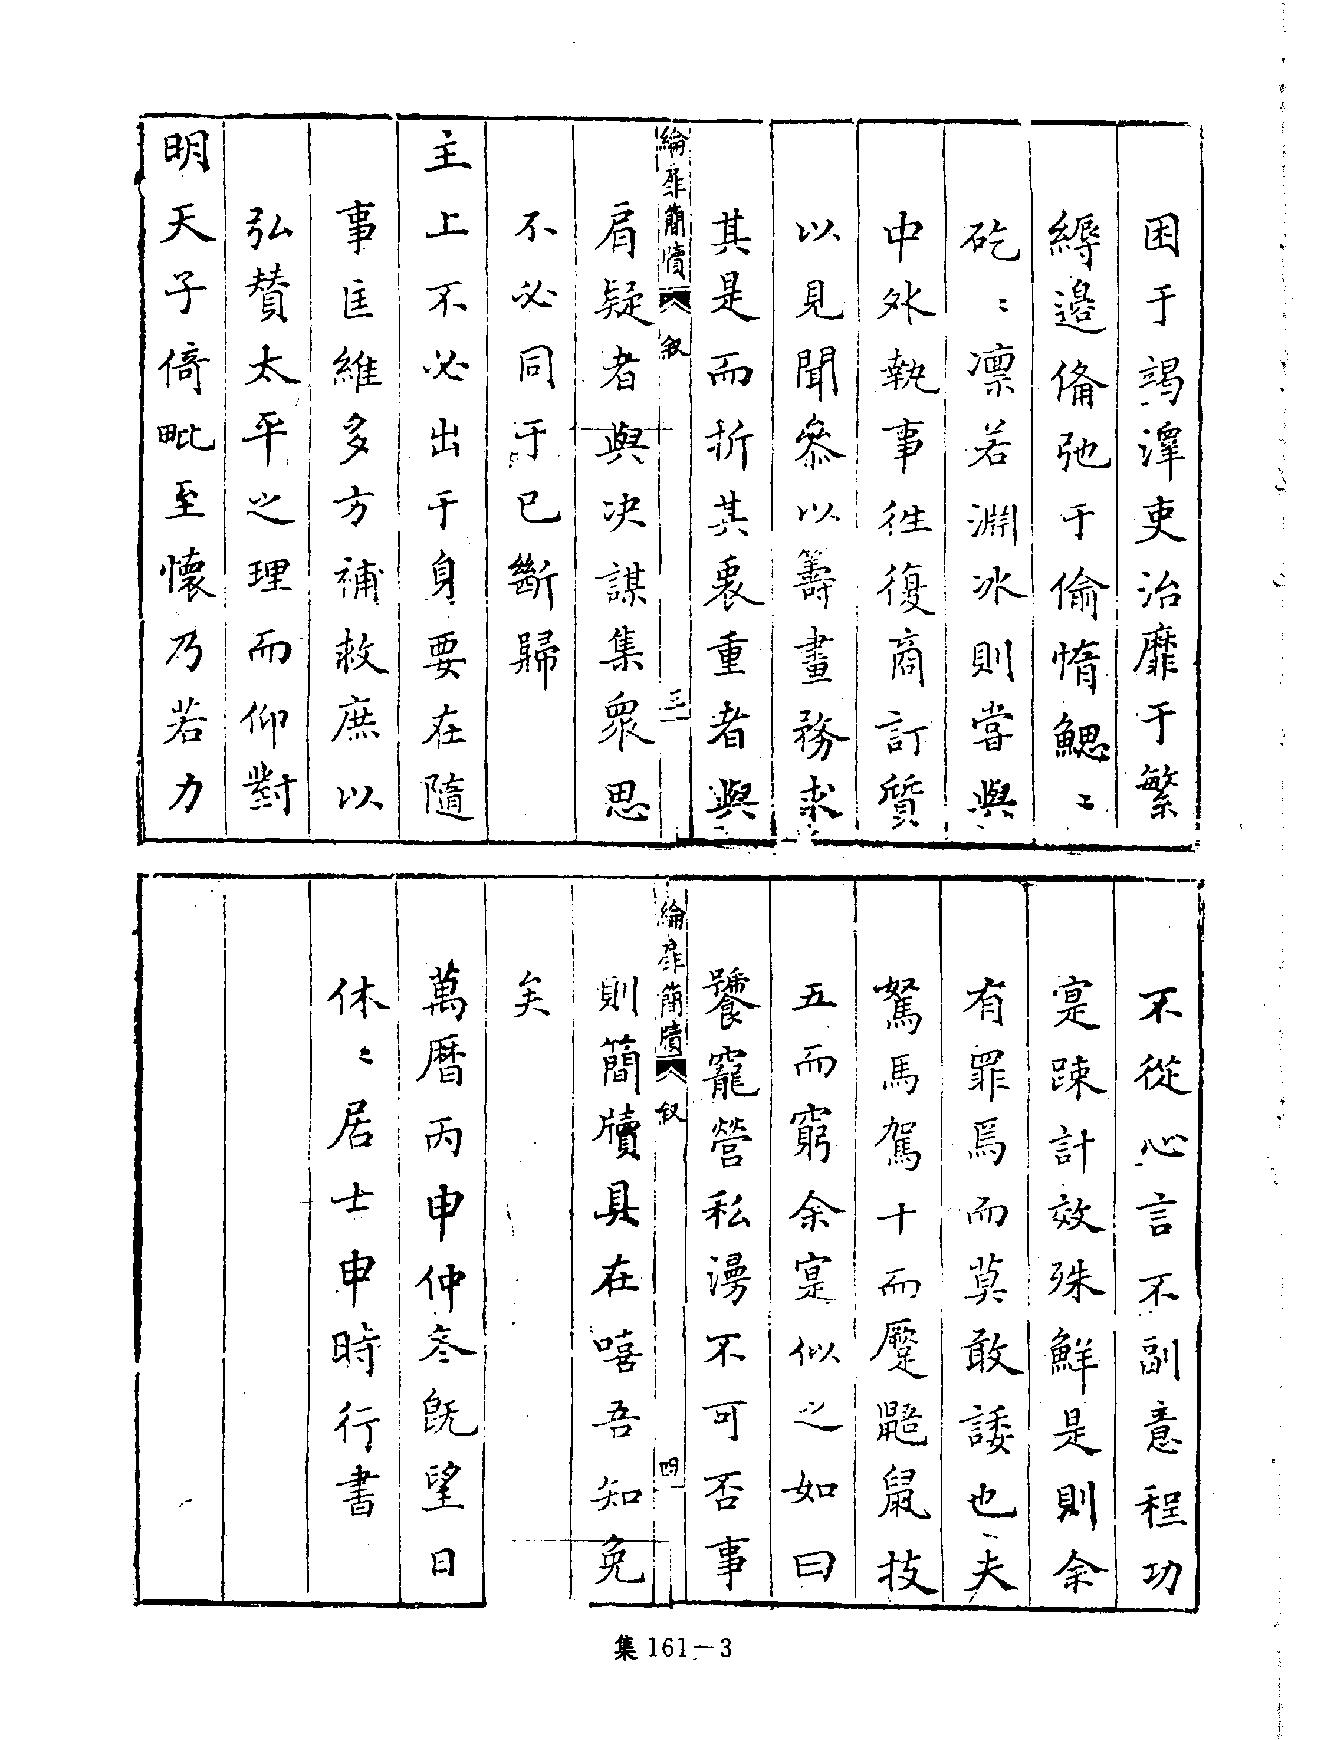 困于竭澤吏治靡于繁
縟邊俻弛于偷惰鰓〻
矻〻凛若淵冰則嘗與
中外執事徃復商訂質
以見聞叅以籌畫務求
其是而折其衷重者與
綸扉簡牘 叙 三
肩疑者與决謀集衆思
不必同于已斷歸
主上不必出于身要在隨
事匡維多方補救庶以
弘贊太平之理而仰對
明天子倚毗至懷乃若力
不從心言不副意程功
寔踈計效殊鮮是則余
有罪焉而莫敢諉也夫
駑馬駕十而蹷鼯鼠技
五而窮余寔似之如曰
饕寵營私漫不可否事
綸扉簡牘 叙 四
則簡牘具在嘻吾知免
矣
萬曆丙申仲冬既望日
休〻居士申時行書
集 161—3